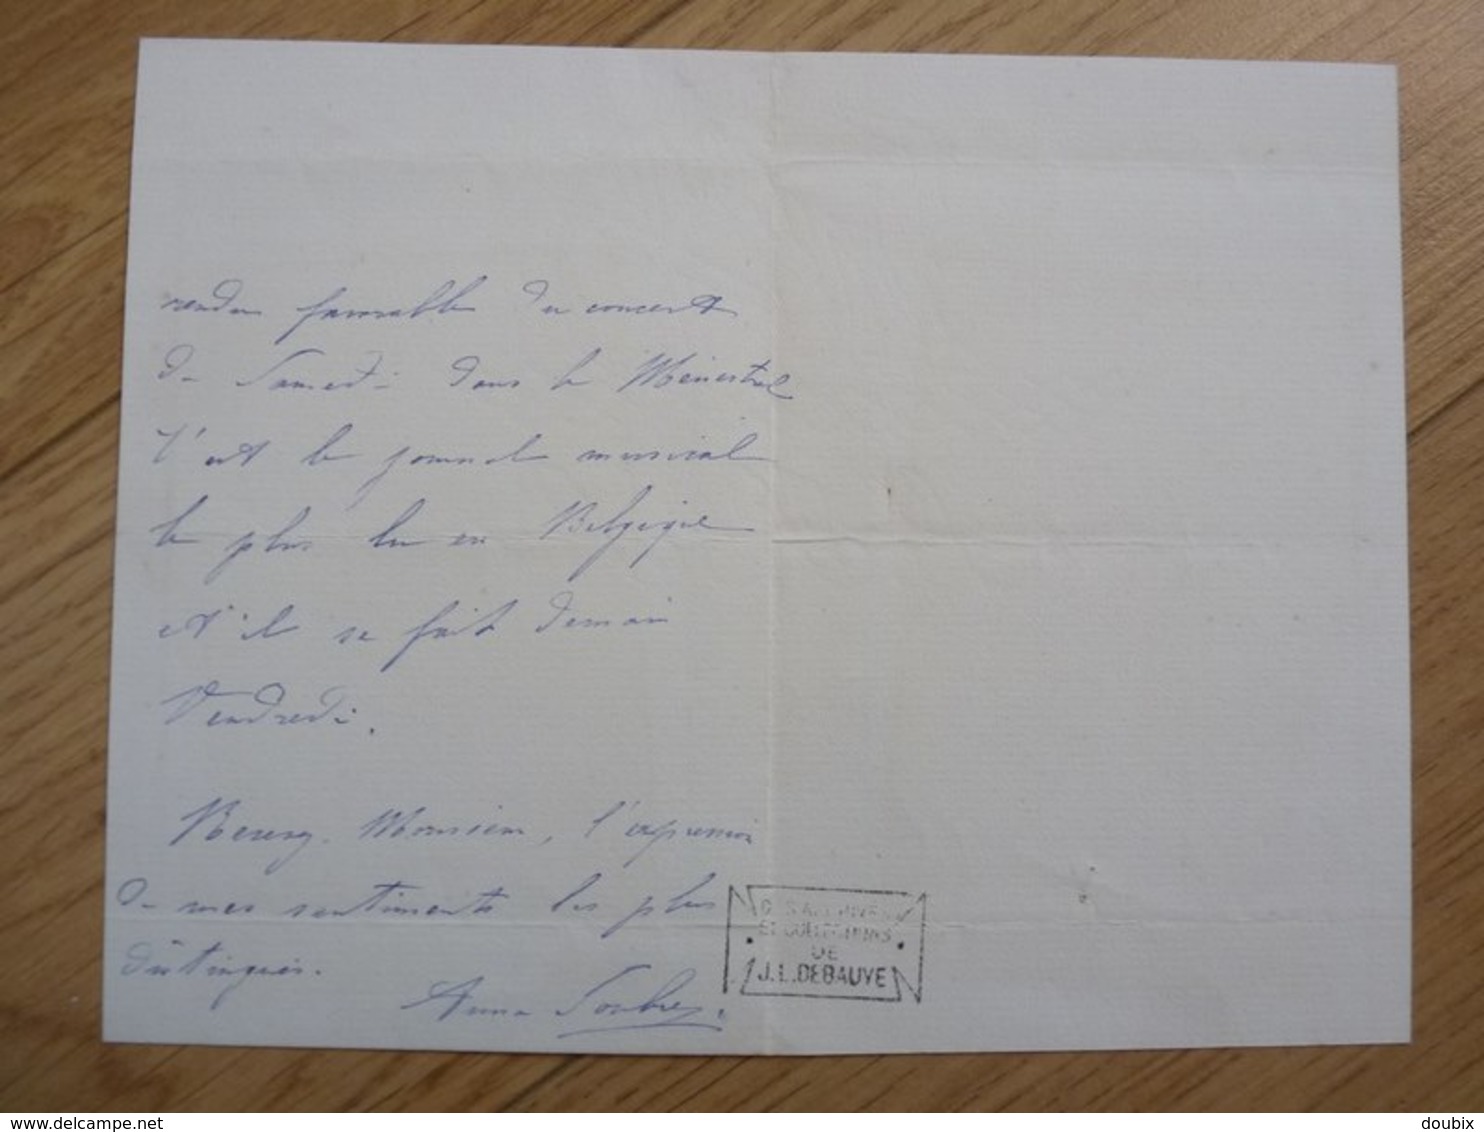 rendu favorable du concert
de Samedi dans le Ménestrel
C'est le journal musical
le plus lu en Belgique
et il se fait demain
Vendredi.
Recevez Monsieur, l'expression
de mes sentiments les plus
distingués.
Anna Soubre
DES ARCHIVES
ET COLLECTIONS
DE
J.L. DEBAUVE
www.delcampe.net
doubix